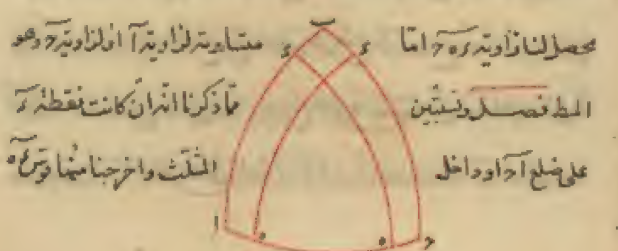 محصل لنا زاوية ءه ح اما متساوية لزاوية آ او لزاوية ح وهو
المط فصل ونستبين مما ذكرنا انه ان كانت نقطة ء
على ضلع آح او داخل المثلث واخرجنا منها قوس ءه
ب
ء ء
ا ه ه ح